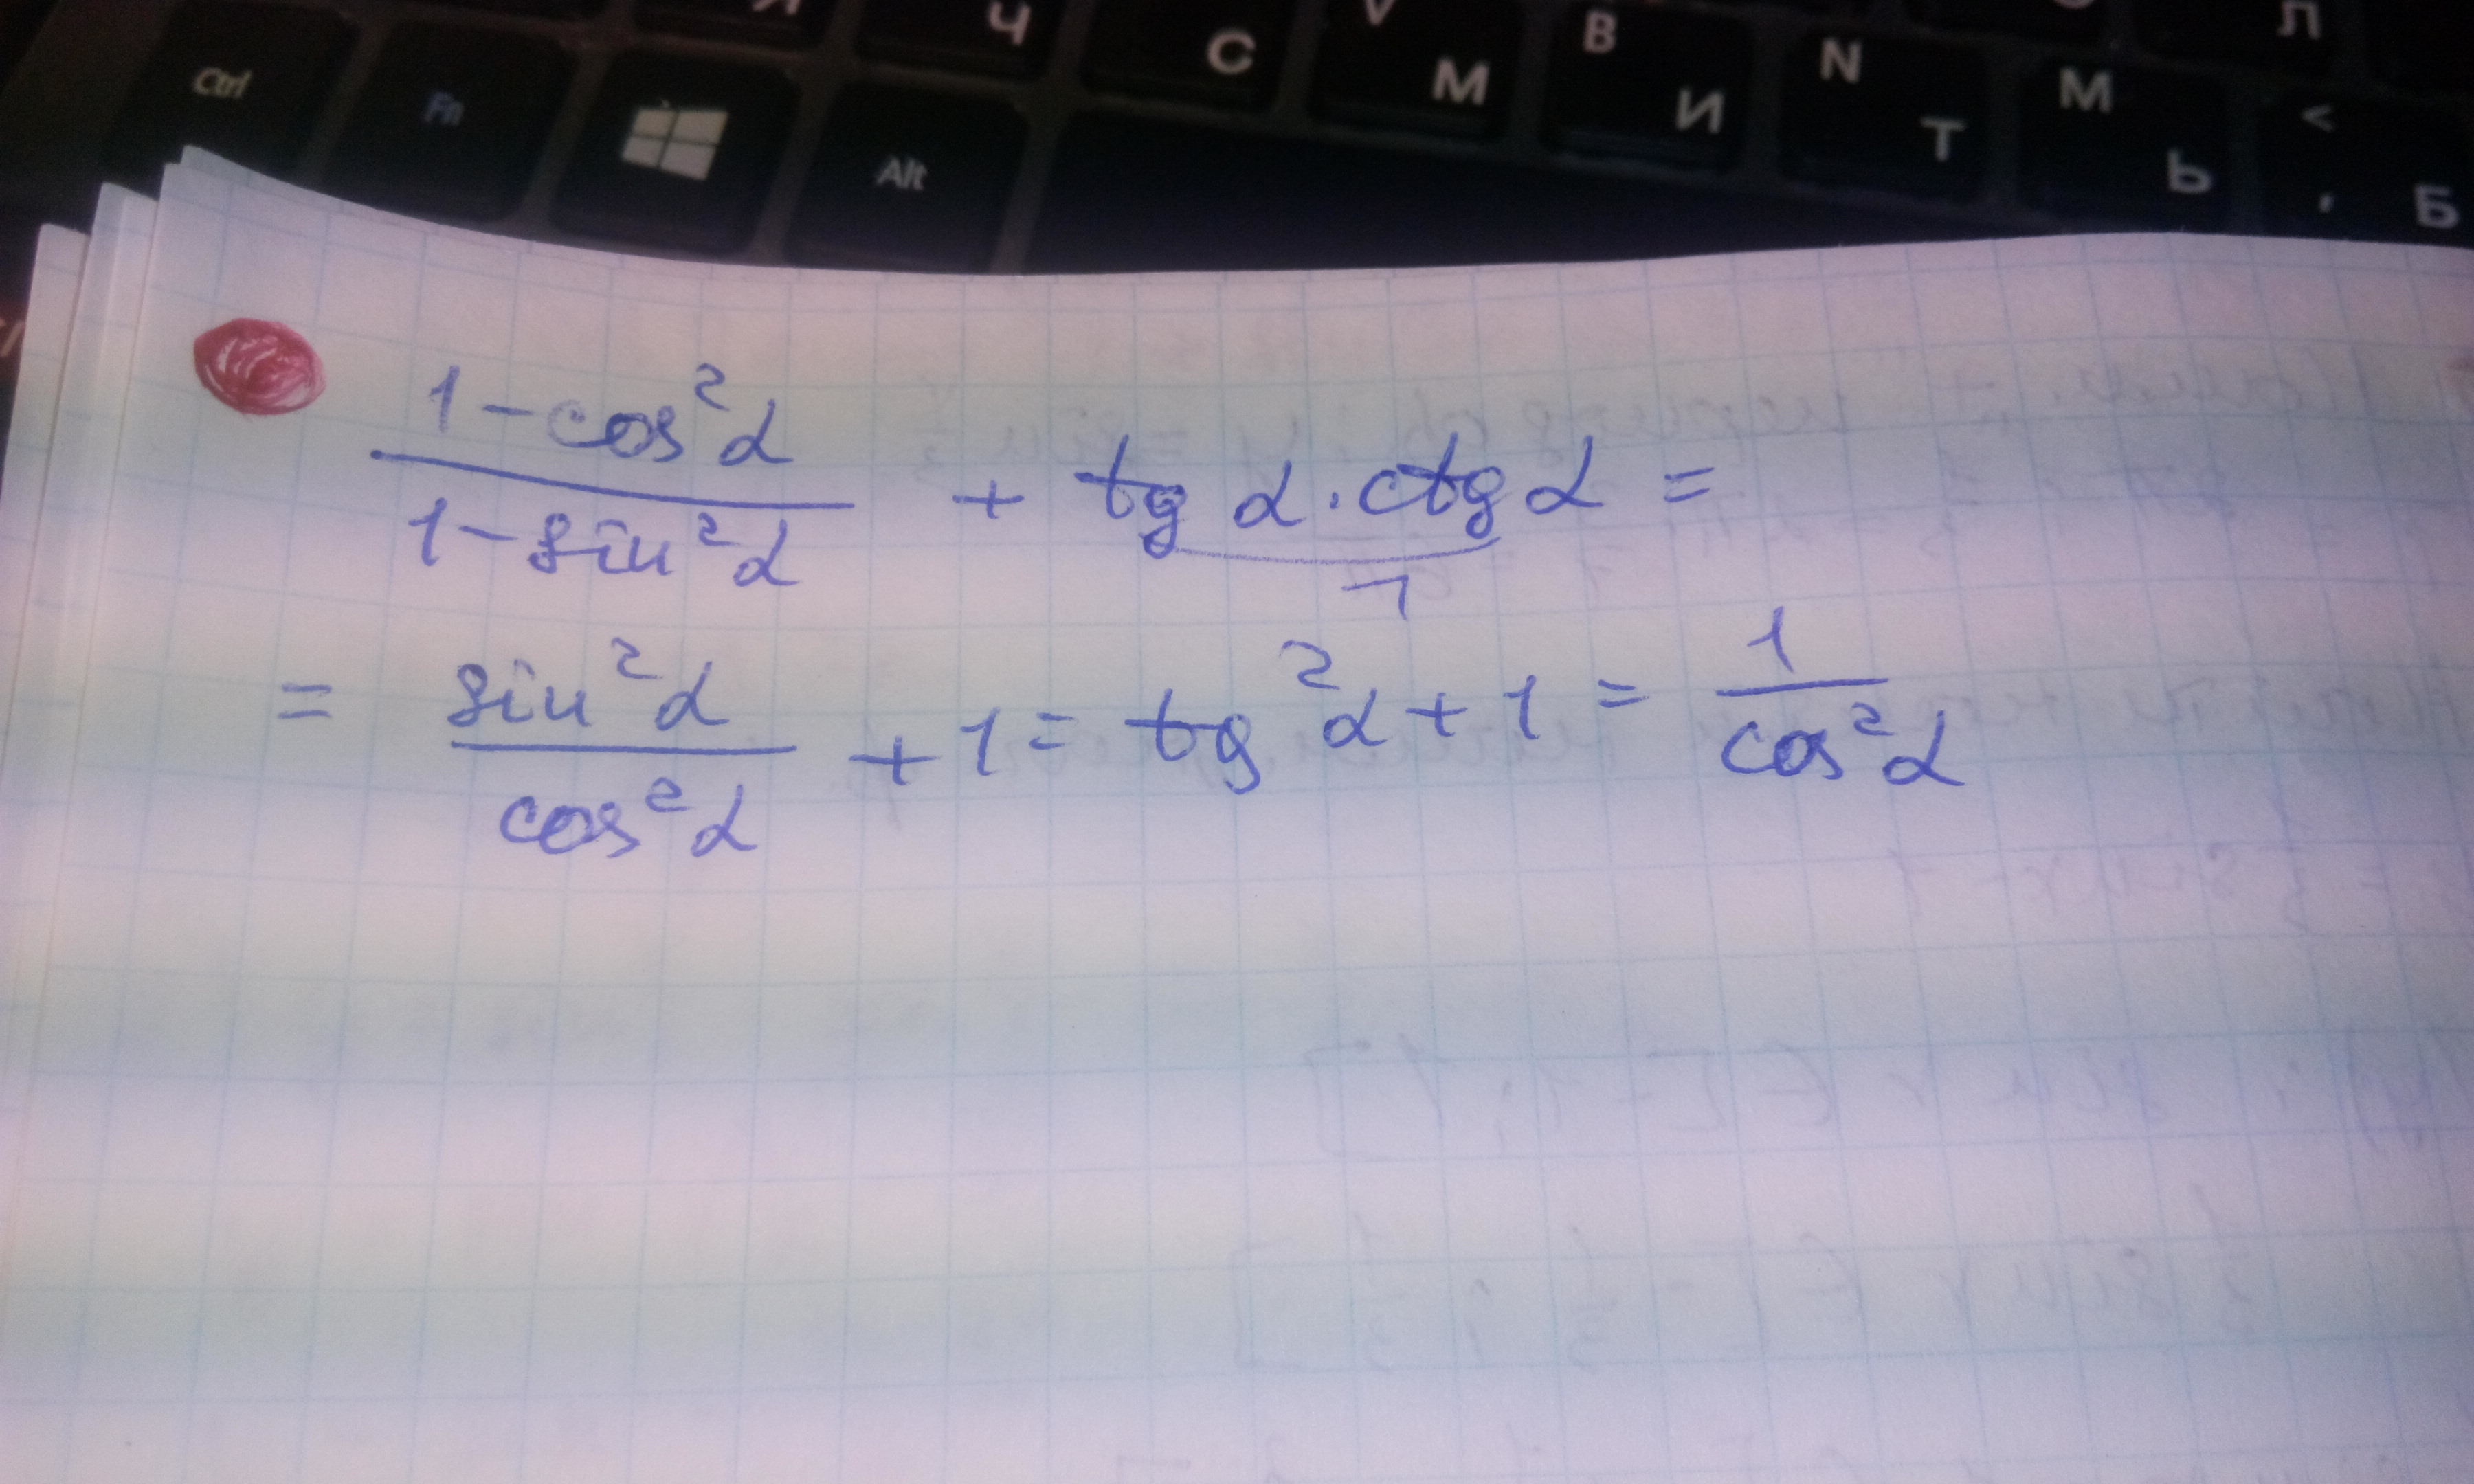 Ctrl Fn Alt Ч С V М B И N Т М Ь < , Б Л
1-cos²α / 1-sin²α + tg α · ctg α =
1
= sin²α / cos²α + 1 = tg²α + 1 = 1 / cos²α